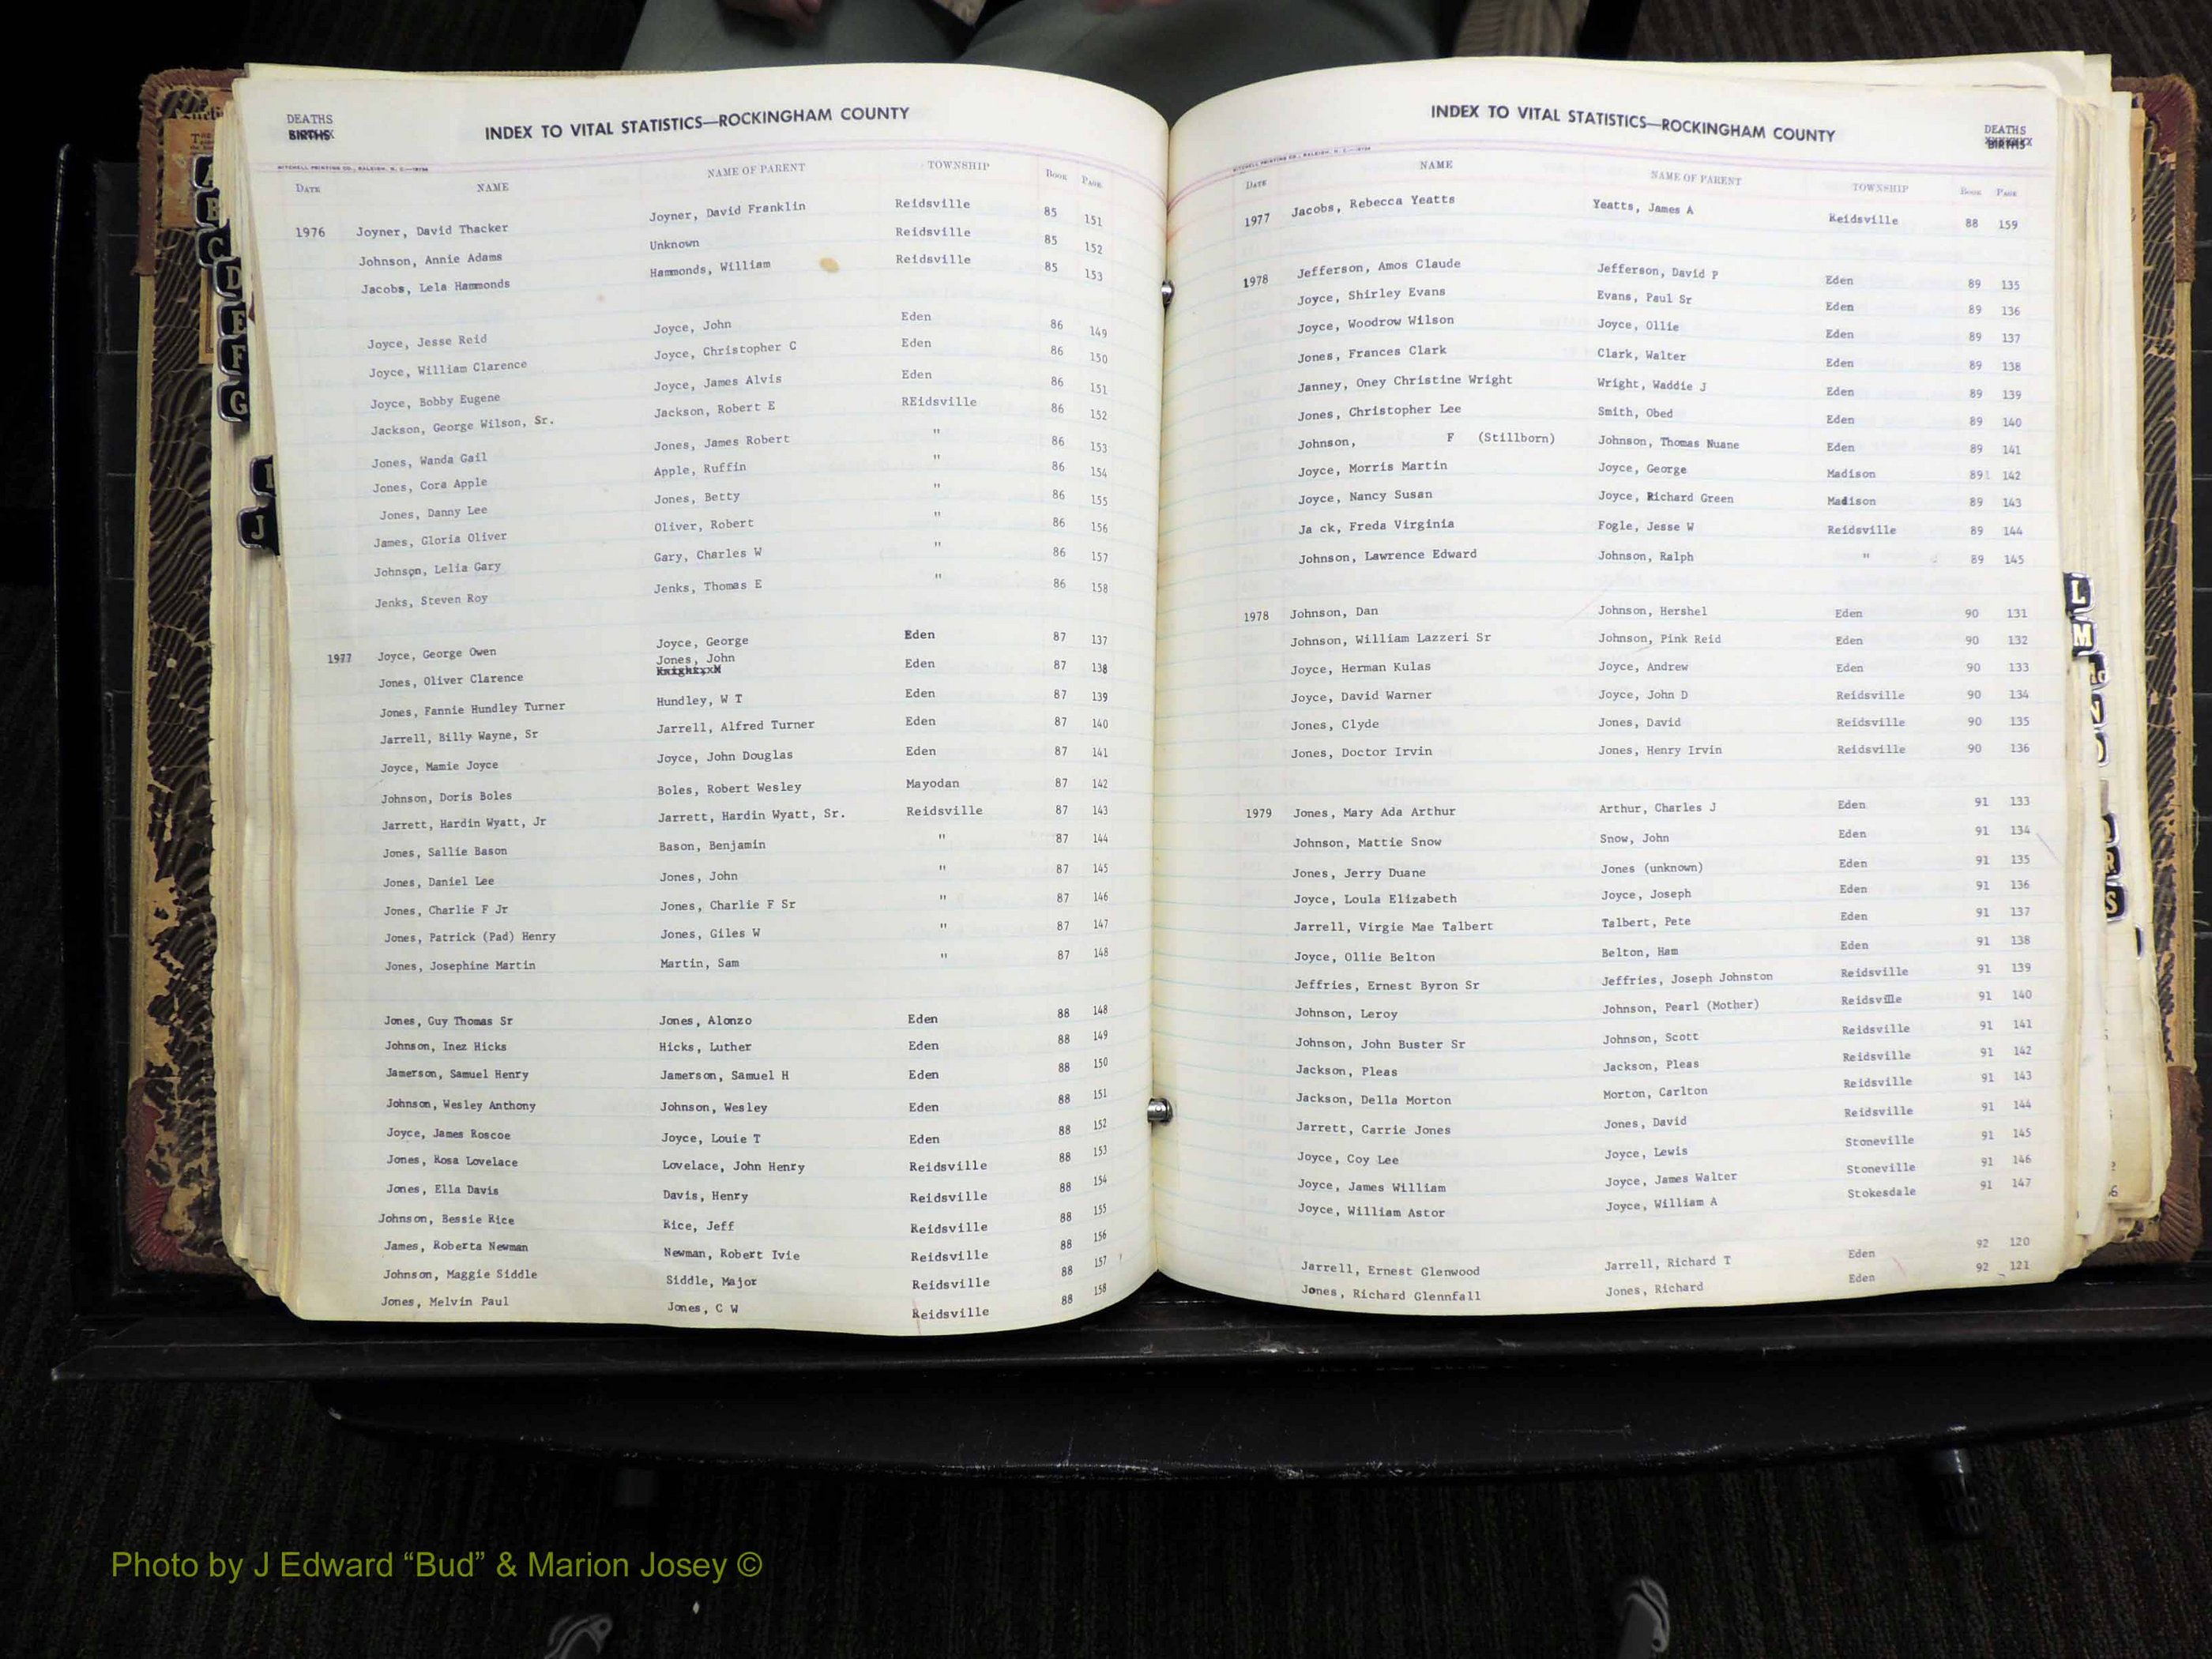 DEATHS
BIRTHS
INDEX TO VITAL STATISTICS—ROCKINGHAM COUNTY
MITCHELL PRINTING CO., RALEIGH, N. C.
DATE NAME NAME OF PARENT TOWNSHIP BOOK PAGE
1976 Joyner, David Thacker Joyner, David Franklin Reidsville 85 151
Johnson, Annie Adams Unknown Reidsville 85 152
Jacobs, Lela Hammonds Hammonds, William Reidsville 85 153
Joyce, Jesse Reid Joyce, John Eden 86 149
Joyce, William Clarence Joyce, Christopher C Eden 86 150
Joyce, Bobby Eugene Joyce, James Alvis Eden 86 151
Jackson, George Wilson, Sr. Jackson, Robert E REidsville 86 152
Jones, Wanda Gail Jones, James Robert " 86 153
Jones, Cora Apple Apple, Ruffin " 86 154
Jones, Danny Lee Jones, Betty " 86 155
James, Gloria Oliver Oliver, Robert " 86 156
Johnson, Lelia Gary Gary, Charles W " 86 157
Jenks, Steven Roy Jenks, Thomas E " 86 158
1977 Joyce, George Owen Joyce, George Eden 87 137
Jones, Oliver Clarence Jones, John Eden 87 138
Jones, Fannie Hundley Turner Hundley, W T Eden 87 139
Jarrell, Billy Wayne, Sr Jarrell, Alfred Turner Eden 87 140
Joyce, Mamie Joyce Joyce, John Douglas Eden 87 141
Johnson, Doris Boles Boles, Robert Wesley Mayodan 87 142
Jarrett, Hardin Wyatt, Jr Jarrett, Hardin Wyatt, Sr. Reidsville 87 143
Jones, Sallie Bason Bason, Benjamin " 87 144
Jones, Daniel Lee Jones, John " 87 145
Jones, Charlie F Jr Jones, Charlie F Sr " 87 146
Jones, Patrick (Pad) Henry Jones, Giles W " 87 147
Jones, Josephine Martin Martin, Sam " 87 148
Jones, Guy Thomas Sr Jones, Alonzo Eden 88 148
Johnson, Inez Hicks Hicks, Luther Eden 88 149
Jamerson, Samuel Henry Jamerson, Samuel H Eden 88 150
Johnson, Wesley Anthony Johnson, Wesley Eden 88 151
Joyce, James Roscoe Joyce, Louie T Eden 88 152
Jones, Rosa Lovelace Lovelace, John Henry Reidsville 88 153
Jones, Ella Davis Davis, Henry Reidsville 88 154
Johnson, Bessie Rice Rice, Jeff Reidsville 88 155
James, Roberta Newman Newman, Robert Ivie Reidsville 88 156
Johnson, Maggie Siddle Siddle, Major Reidsville 88 157
Jones, Melvin Paul Jones, C W Reidsville 88 158
INDEX TO VITAL STATISTICS—ROCKINGHAM COUNTY
DEATHS
BIRTHS
MITCHELL PRINTING CO., RALEIGH, N. C.
DATE NAME NAME OF PARENT TOWNSHIP BOOK PAGE
1977 Jacobs, Rebecca Yeatts Yeatts, James A Reidsville 88 159
1978 Jefferson, Amos Claude Jefferson, David P Eden 89 135
Joyce, Shirley Evans Evans, Paul Sr Eden 89 136
Joyce, Woodrow Wilson Joyce, Ollie Eden 89 137
Jones, Frances Clark Clark, Walter Eden 89 138
Janney, Oney Christine Wright Wright, Waddie J Eden 89 139
Jones, Christopher Lee Smith, Obed Eden 89 140
Johnson, F (Stillborn) Johnson, Thomas Nuane Eden 89 141
Joyce, Morris Martin Joyce, George Madison 89 142
Joyce, Nancy Susan Joyce, Richard Green Madison 89 143
Ja ck, Freda Virginia Fogle, Jesse W Reidsville 89 144
Johnson, Lawrence Edward Johnson, Ralph " 89 145
1978 Johnson, Dan Johnson, Hershel Eden 90 131
Johnson, William Lazzeri Sr Johnson, Pink Reid Eden 90 132
Joyce, Herman Kulas Joyce, Andrew Eden 90 133
Joyce, David Warner Joyce, John D Reidsville 90 134
Jones, Clyde Jones, David Reidsville 90 135
Jones, Doctor Irvin Jones, Henry Irvin Reidsville 90 136
1979 Jones, Mary Ada Arthur Arthur, Charles J Eden 91 133
Johnson, Mattie Snow Snow, John Eden 91 134
Jones, Jerry Duane Jones (unknown) Eden 91 135
Joyce, Loula Elizabeth Joyce, Joseph Eden 91 136
Jarrell, Virgie Mae Talbert Talbert, Pete Eden 91 137
Joyce, Ollie Belton Belton, Ham Eden 91 138
Jeffries, Ernest Byron Sr Jeffries, Joseph Johnston Reidsville 91 139
Johnson, Leroy Johnson, Pearl (Mother) Reidsville 91 140
Johnson, John Buster Sr Johnson, Scott Reidsville 91 141
Jackson, Pleas Jackson, Pleas Reidsville 91 142
Jackson, Della Morton Morton, Carlton Reidsville 91 143
Jarrett, Carrie Jones Jones, David Reidsville 91 144
Joyce, Coy Lee Joyce, Lewis Stoneville 91 145
Joyce, James William Joyce, James Walter Stoneville 91 146
Joyce, William Astor Joyce, William A Stokesdale 91 147
Jarrell, Ernest Glenwood Jarrell, Richard T Eden 92 120
Jones, Richard Glennfall Jones, Richard Eden 92 121
A
B
C
D
E
F
G
I
J
L
M
R
S
Photo by J Edward “Bud” & Marion Josey ©